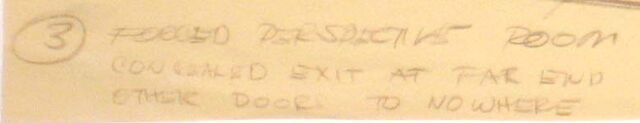 3 FORCED PERSPECTIVE ROOM
CONCEALED EXIT AT FAR END
OTHER DOORS TO NOWHERE